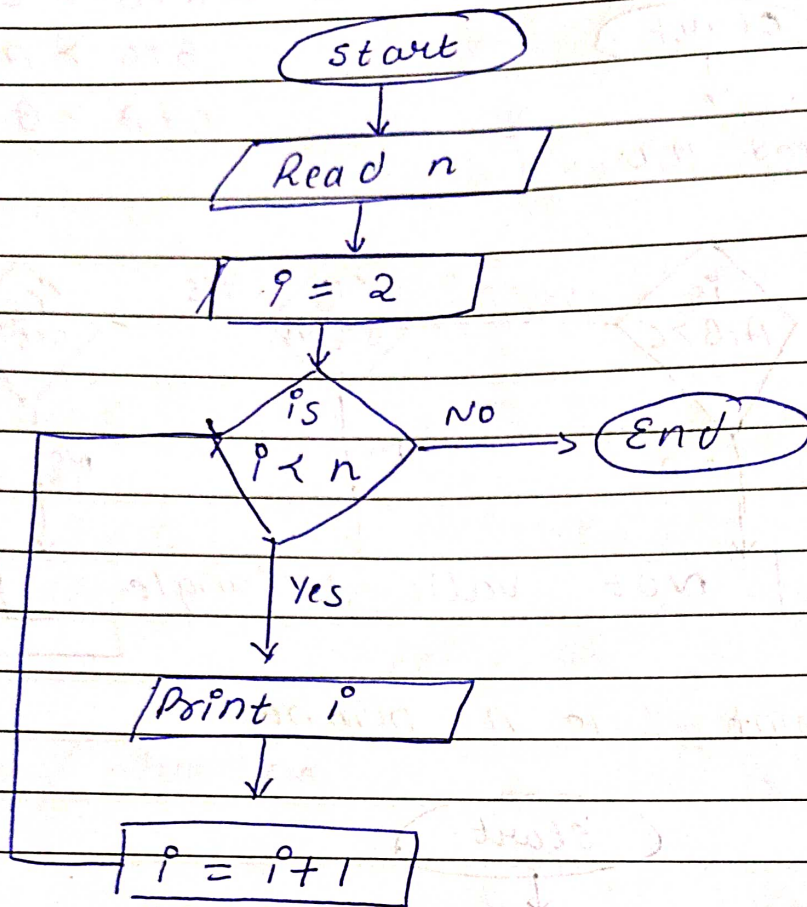 start
Read n
i = 2
is
i < n
NO
End
Yes
Print i
i = i+1